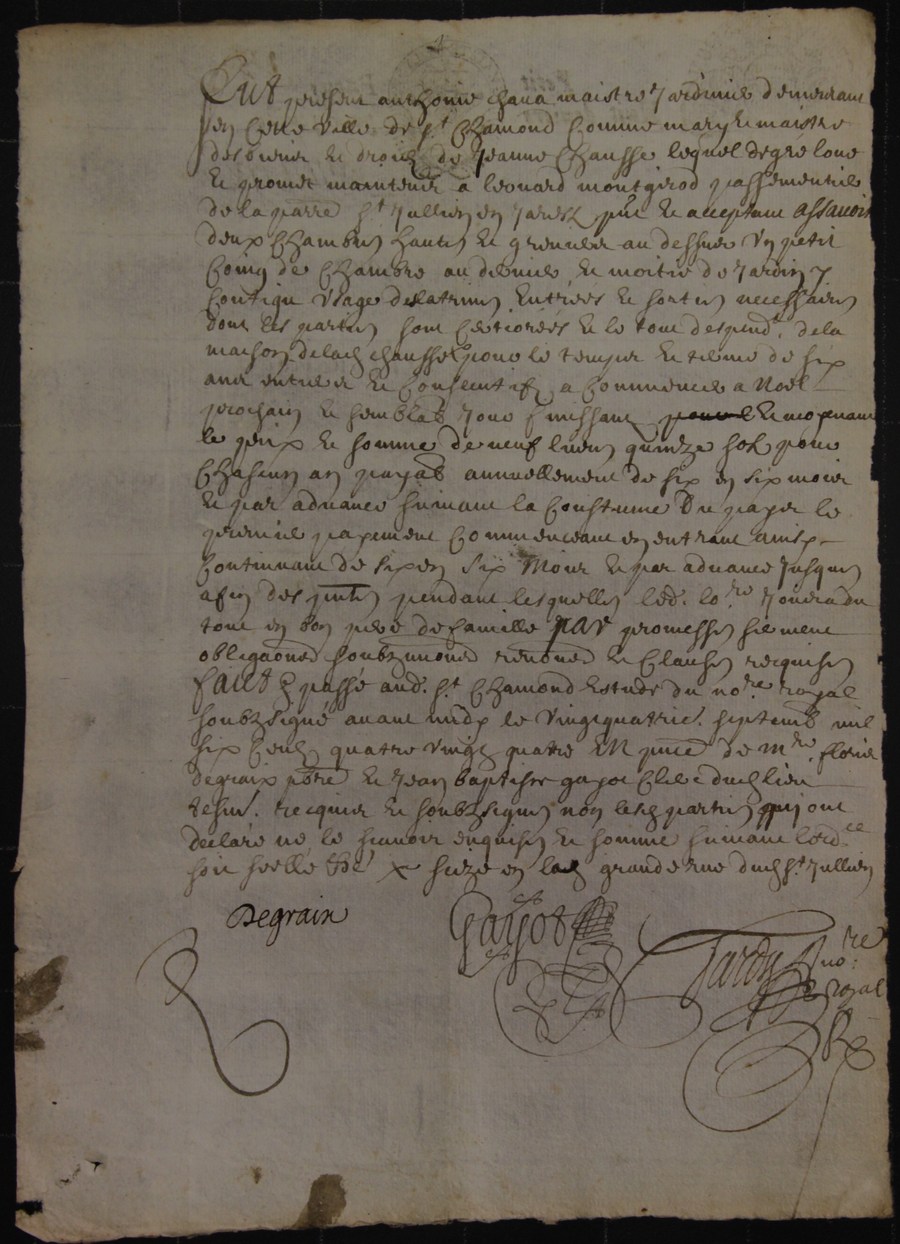 Fut present anthoine chana maistre Jardinier demeurant
en cette ville de st Chamond Comme mary et maistre
des biens et droictz de Jeanne Chausse lequel de gré loue
et promet maintenir a leonard montgirod passementier
de la parre st Jullien en Jarestz pnt et acceptant assavoir
deux Chambres hautes et grenier au dessus un petit
Coing de Chambre au dernier et moitié de Jardin y
Contigu usage de latrines Entrées et sorties necessaires
dont les parties sont Certiorées et le tout despendt de la
maison de lad chausse pour le temps et terme de six
ans entiers et Consecutifz a Commencer a Noel
prochain et semblab Jour finissant et moyenant
le prix et somme de neuf livres quinze solz pour
Chascun an payab annuellement de six en six mois
et par advance suivant la Coustume Du payer le
premier payement Commenceant en entrant ainsy
Continuant de six en six Mois et par advance Jusques
a fin des pntes pendant lesquelles led. lo.re Jouira du
tout en bon pere de famille par promesses serment
obligaons soubzmions renoncens et Clauses recquises
faict & passé aud. st Chamond estude du no.re royal
soubzsigné avant midy le vingtquatries. septemb mil
six Centz quatre vingtz quatre en pnce de m.re floris
degraix pbre et Jean baptiste gayot Clerc dud lieu
tesms. recquis et soubzsignes non lesd parties qui ont
declaré ne le scavoir enquises et somme suivant lord.ce
soit scellé &c x size en lad grande rue dud st Jullien
Degraix
Gayot
Tardy no.re
royal